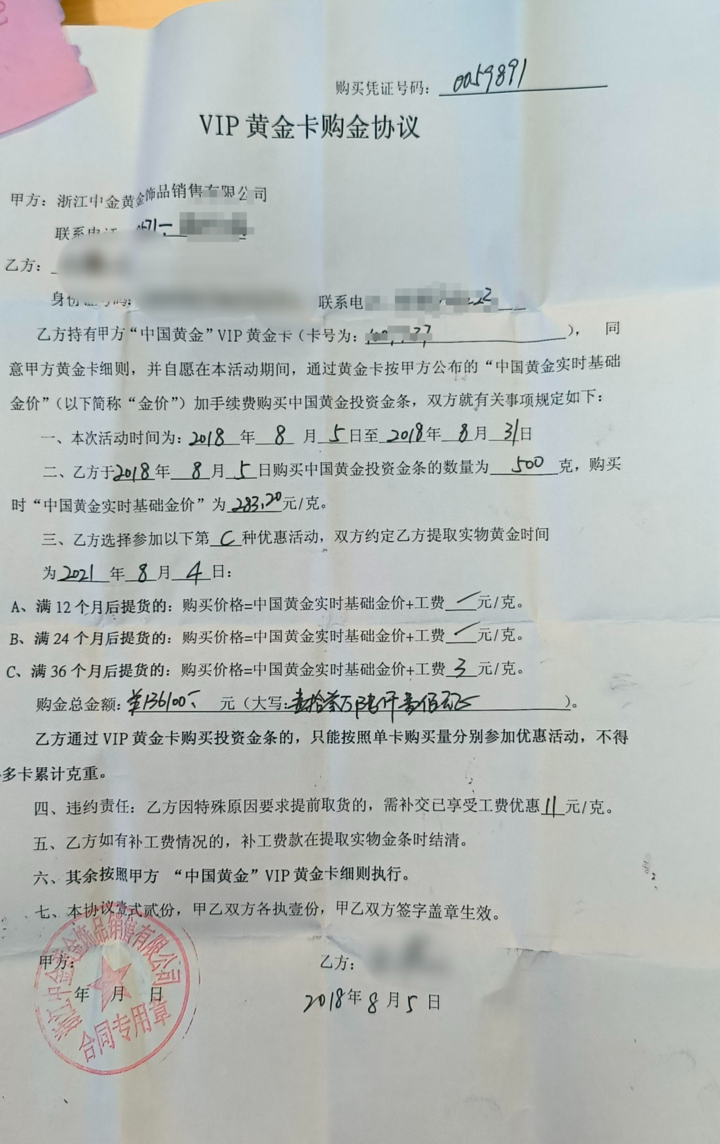 购买凭证号码：0059891
VIP 黄金卡购金协议
甲方：浙江中金黄金饰品销售有限公司
联系电话 0571-
乙方：
身份证号码： 联系电
乙方持有甲方“中国黄金”VIP 黄金卡（卡号为： ），同
意甲方黄金卡细则，并自愿在本活动期间，通过黄金卡按甲方公布的“中国黄金实时基础
金价”（以下简称“金价”）加手续费购买中国黄金投资金条，双方就有关事项规定如下：
一、本次活动时间为：2018 年 8 月 5 日至 2018 年 8 月 31 日
二、乙方于 2018 年 8 月 5 日购买中国黄金投资金条的数量为 500 克，购买
时“中国黄金实时基础金价”为 283.20 元/克。
三、乙方选择参加以下第 C 种优惠活动，双方约定乙方提取实物黄金时间
为 2021 年 8 月 4 日：
A、满 12 个月后提货的：购买价格=中国黄金实时基础金价+工费 / 元/克。
B、满 24 个月后提货的：购买价格=中国黄金实时基础金价+工费 / 元/克。
C、满 36 个月后提货的：购买价格=中国黄金实时基础金价+工费 3 元/克。
购金总金额：¥136100 元（大写：壹拾叁万陆仟壹佰元 ）。
乙方通过 VIP 黄金卡购买投资金条的，只能按照单卡购买量分别参加优惠活动，不得
多卡累计克重。
四、违约责任：乙方因特殊原因要求提前取货的，需补交已享受工费优惠 11 元/克。
五、乙方如有补工费情况的，补工费款在提取实物金条时结清。
六、其余按照甲方 “中国黄金”VIP 黄金卡细则执行。
七、本协议壹式贰份，甲乙双方各执壹份，甲乙双方签字盖章生效。
甲方： 乙方：
年 月 日 2018 年 8 月 5 日
浙江中金黄金饰品销售有限公司
合同专用章